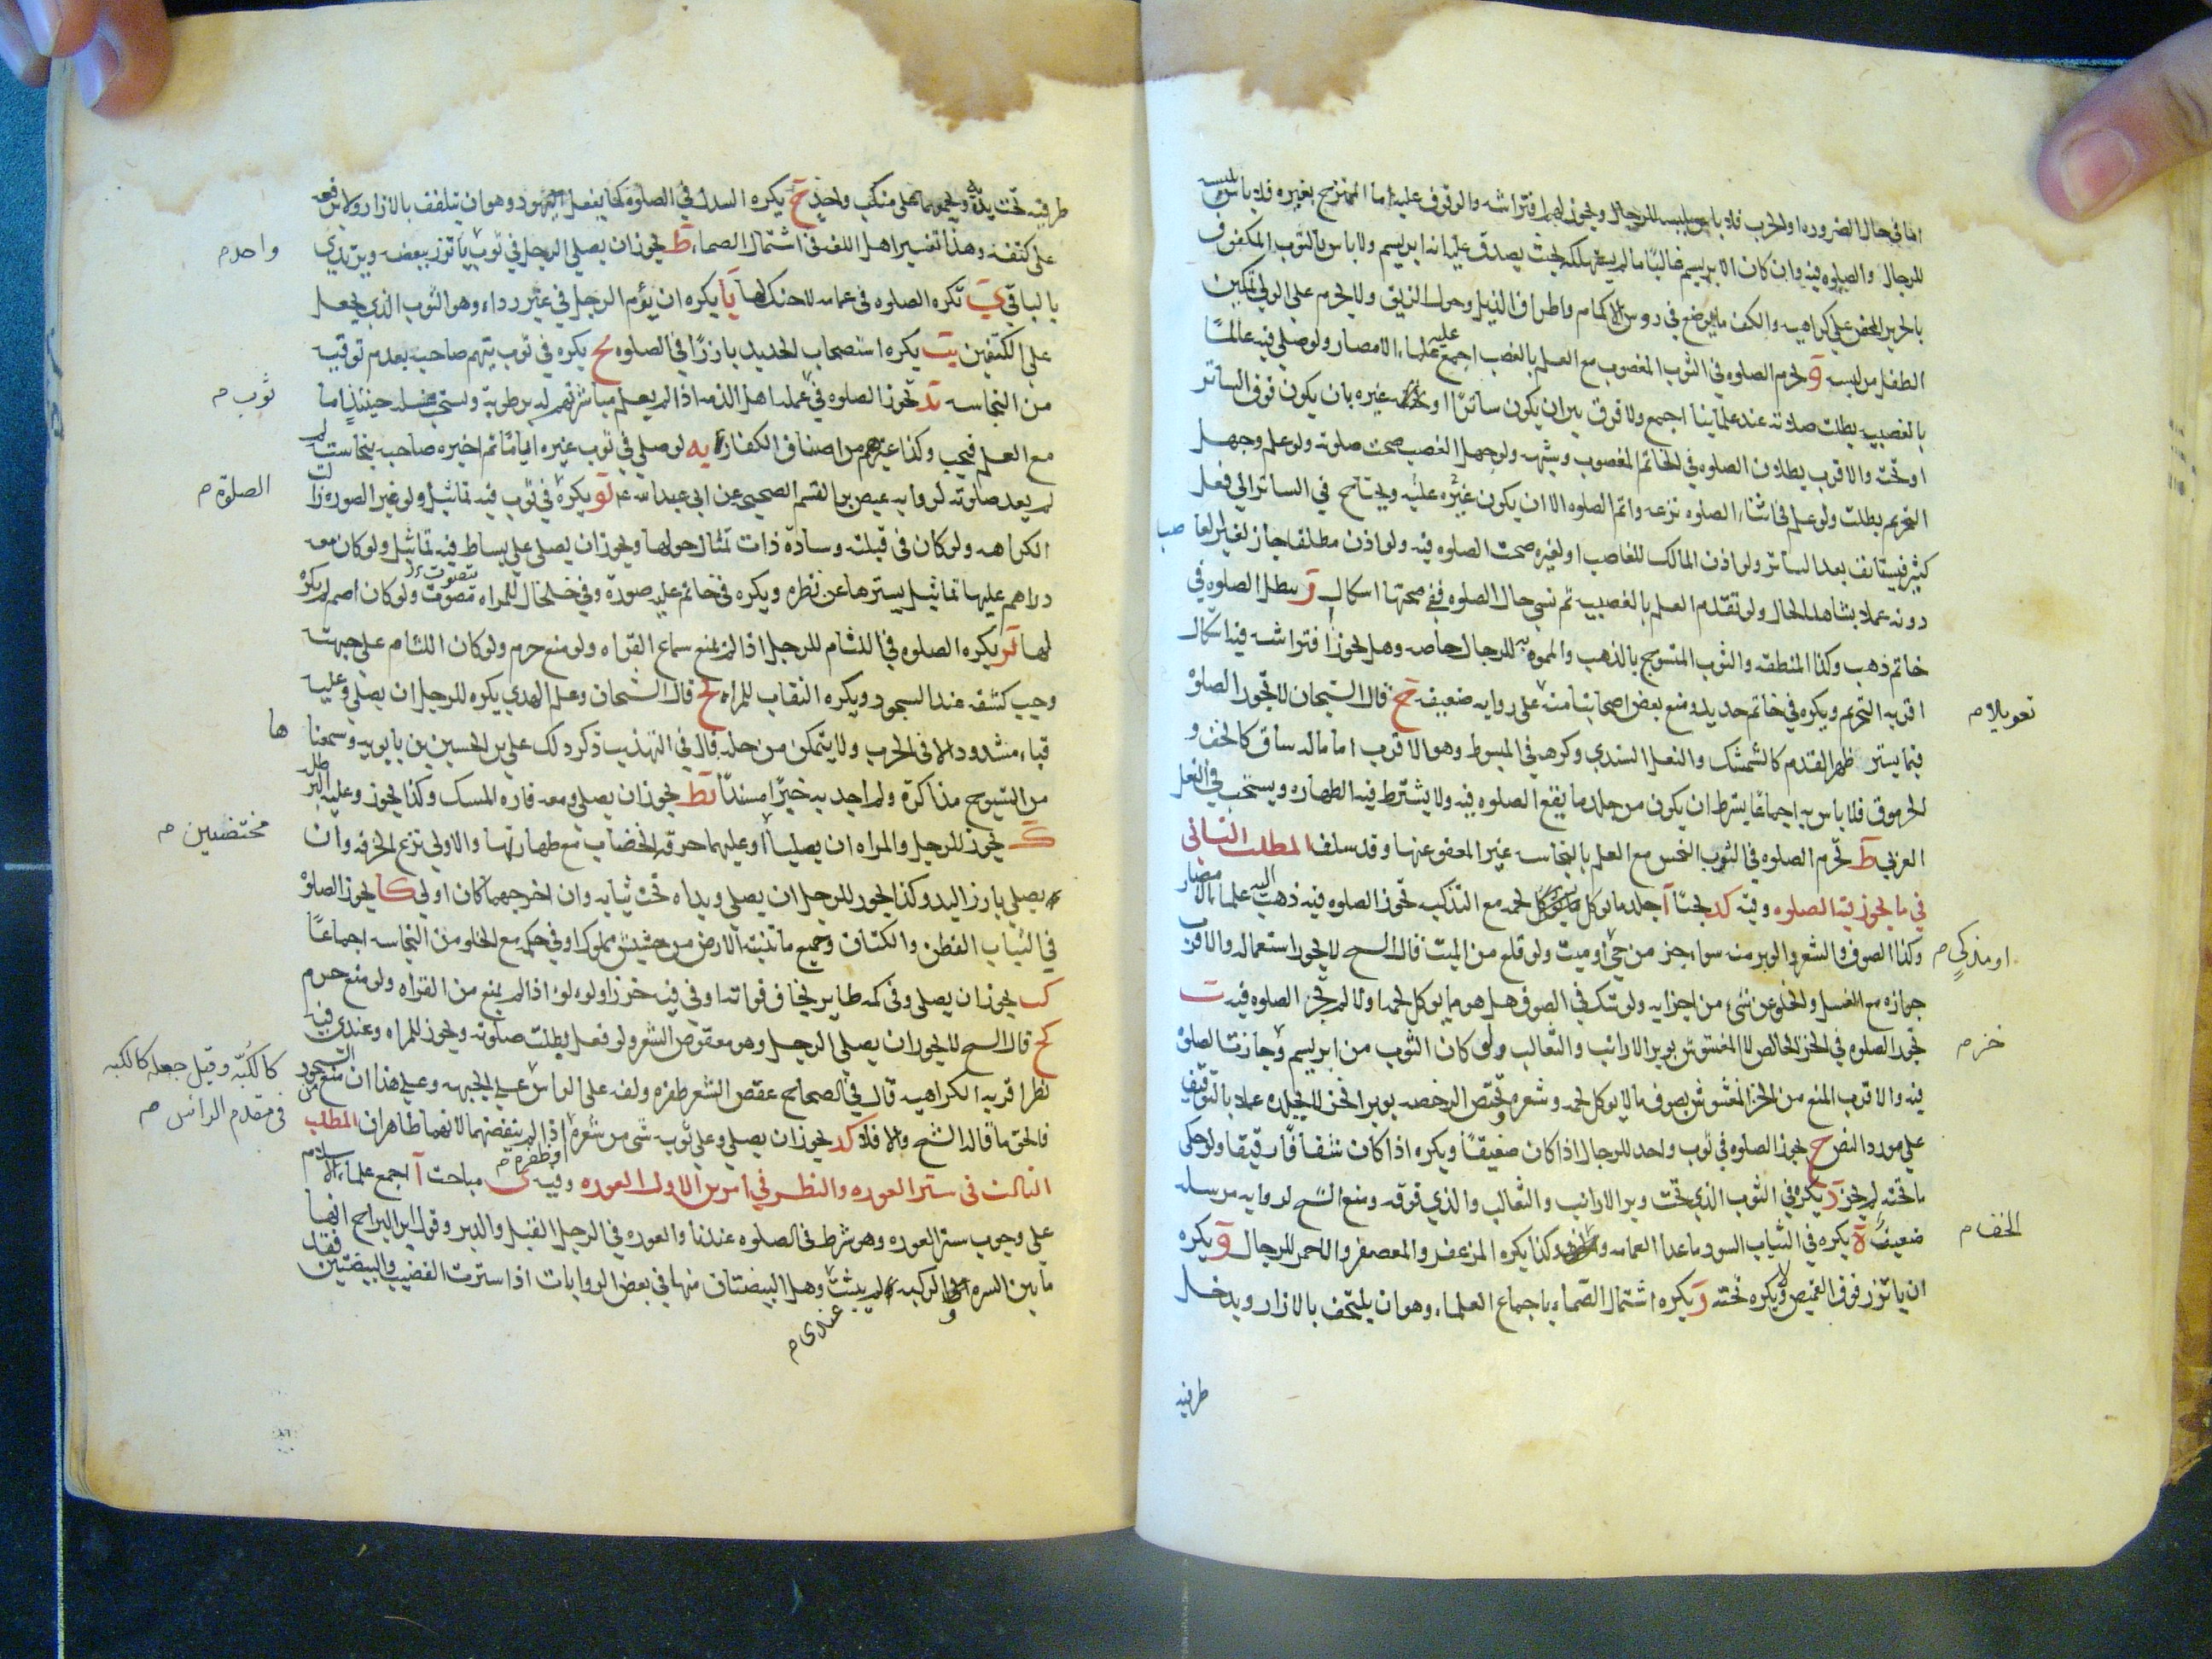 اما في حال الضروره او الحرب فلا باس بلبسه للرجال ويجوز لهم افتراشه والوقوف عليه اما الممتزج بغيره فلا باس بلبسه
للرجال والصلوه فيه وان كان الابريسم غالبًا ما لم يستهلكه بحيث يصدق عليه انه ابريسم ولا باس بالثوب المكفوف
بالحرير المحض على كراهيه والكف ما يوضع في روس الاكمام واطراف الذيل وحول الزيق ولا يحرم على الولي تمكين
الطفل من لبسه و تحرم الصلوه في الثوب المغصوب مع العلم بالغصب اجمع عليه علماء الامصار ولو صلى فيه عالمًا
بالغصب بطلت صلاته عند علمائنا اجمع ولا فرق بين ان يكون ساترًا او غيره بان يكون فوق الساتر
او تحته والاقرب بطلان الصلوه في الخاتم المغصوب وشبهه ولو جهل الغصب صحت صلوته ولو علم وجهل
التحريم بطلت ولو علم في اثناء الصلوه نزعه واتم الصلوه الا ان يكون غيره عليه ويحتاج في الساتر الى فعل
كثير فيستانف بعد الساتر ولو اذن المالك للغاصب او لغيره صحت الصلوه فيه ولو اذن مطلقا جاز لغير الغاصب
دونه عملا بشاهد الحال ولو تقدم العلم بالغصبيه ثم نسي حال الصلوه ففي صحتها اشكال ز تبطل الصلوه في
خاتم ذهب وكذا المنطقه والثوب المنسوج بالذهب والمموه به للرجال خاصه وهل يجوز افتراشه فيه اشكال
اقربه التحريم ويكره في خاتم حديد ومنع بعض اصحابنا منه على روايه ضعيفه ح قال الشيخان لا تجوز الصلوة
تعويلا م
فيما يستر ظهر القدم كالشمشك والنعل السندي وكرهه في المبسوط وهو الاقرب اما ماله ساق كالخف و
الجرموق فلا باس به اجماعًا بشرط ان يكون من جلد ما يقع الصلوه فيه ولا يشترط فيه الطهاره ويستحب في النعل
العربي ط تحرم الصلوه في الثوب النجس مع العلم بالنجاسه غير المعفو عنها وقد سلف المطلب الثاني
في ما يجوز فيه الصلوه وفيه كد بحثًا آ جلد ما يوكل لحمه مع التذكيه تجوز الصلوه فيه ذهب اليه علماء الامصار
وكذا الصوف والشعر والوبر منه سواء جز من حي او ميت ولو قلع من الميت قال الشيخ لا يجوز استعماله والاقرب
او مذكي م
جوازه مع الغسل والخلو عن شيء من اجزايه ولو شك في الصوف هل هو مما يوكل لحمه او لا لم تجز الصلوه فيه ب
تجوز الصلوه في الخز الخالص لا المغشوش بوبر الارانب والثعالب ولو كان الثوب من ابريسم وجازت الصلوة
خز م
فيه والاقرب المنع من الخز المغشوش بصوف مالا يوكل لحمه وشعره وتختص الرخصه بوبر الخز لا بجلده عملا بالتوقيف
على مورد النص ج يجوز الصلوه في ثوب واحد للرجال اذا كان صفيقًا ويكره اذا كان شفافًا رقيقا ولو حكى
ما تحته لم يجز د يكره في الثوب الذي تحت وبر الارانب والثعالب والذي فوقه ومنع الشيخ لروايه مرسله
ضعيفه ة يكره في الثياب السود ما عدا العمامه وكذا يكره المزعفر والمعصفر والاحمر للرجال و يكره
الخف م
ان ياتزر فوق القميص ولا يكره تحته ز يكره اشتمال الصماء باجماع العلماء وهو ان يلتحف بالازار ويدخل
طرفيه
طرفيه تحت يده ويجمعهما على منكب واحد ح يكره السدل في الصلوه كما يفعل اليهود وهو ان يتلفف بالازار ولا يرفعه
على كتفه وهذا تفسير اهل اللغه في اشتمال الصماء ط يجوز ان يصلي الرجل في ثوب ياتزر ببعضه ويرتدي
واحد م
بالباقي ي تكره الصلوه في عمامه لا حنك لها يا يكره ان يؤم الرجل في غير رداء وهو الثوب الذي يجعل
على الكتفين يب يكره استصحاب الحديد بارزًا في الصلوه يج يكره في ثوب يتهم صاحبه بعدم توقيه
من النجاسه يد تجوز الصلوه في عمله اهل الذمه اذا لم يعلم مباشرتهم له برطوبة ويستحب غسله حينئذ اما
ثوب م
مع العلم فيجب وكذا غيرهم من اصناف الكفار يه لو صلى في ثوب غيره ايامًا ثم اخبره صاحبه بنجاسته لم
لم يعد صلوته لروايه عيص بن القسم الصحيح عن ابي عبد الله ع يو يكره في ثوب فيه تماثيل ولو غير الصوره زالت
الصلوة م
الكراهه ولو كان في قبلته وسادة ذات تمثال حولها ويجوز ان يصلي على بساط فيه تماثيل ولو كان معه
دراهم عليها تماثيل يسترها عن نظره ويكره في خاتم عليه صورة وفي خلخال للمراه مصوت ولو كان اصم لم يكره
لها يز يكره الصلوه في اللثام للرجل اذا لم يمنع سماع القراه ولو منع حرم ولو كان اللثام على جبهته
وجب كشفه عند السجود ويكره النقاب للمراه يح قال الشيخان وعلم الهدي يكره للرجل ان يصلي وعليه
قباء مشدود الا في الحرب ولا يتمكن من حله قال في التهذيب ذكر ذلك علي بن الحسين بن بابويه وسمعناها
من الشيوخ مذاكرة ولم اجد به خبرًا مسندًا يط يجوز ان يصلي ومعه فاره المسك وكذا يجوز وعليه البرطله
ك يجوز للرجل والمراه ان يصليا وعليهما خرقه الخضاب مع طهارتها والاولى نزع الخرقه وان
مختضبين م
يصلي بارز اليد وكذا يجوز للرجل ان يصلي ويداه تحت ثيابه وان اخرجهما كان اولى كا يجوز الصلوة
في الثياب القطن والكتان وجميع ما تنبته الارض من حشيش مملوك او في حكمه مع الخلو من النجاسه اجماعًا
كب يجوز ان يصلي وفي كمه طاير يخاف فواته او في فيه خرز او لولو اذا لم يمنع من القراه ولو منع حرم
كج قال الشيخ لا يجوز ان يصلي الرجل وهو معقوص الشعر ولو فعل بطلت صلوته ويجوز للمراه وعندي فيه
نظر اقربه الكراهيه قال في الصحاح عقص الشعر ظفره وليه على الراس على الجبهه وعلى هذا ان منع من السجود
كالكبه وقيل جعله كالكبه
في مقدم الرائس م
فالحق ما قاله الشيخ والا فلا كد يجوز ان يصلي وعلى ثوبه شي من شعره او ظفره م اذا لم ينفضهما لانهما طاهران المطلب
الثالث في ستر العوره والنظر في امرين الاول العوره وفيه ى مباحث آ اجمع علماء الاسلام
على وجوب ستر العوره وهو شرط في الصلوه عندنا والعوره في الرجل القبل والدبر وقول ابن البراج انها
ما بين السره الى الركبه لم يثبت وهل البيضتان منها في بعض الروايات اذا سترت القضيب والبيضتين فقد
عندي م